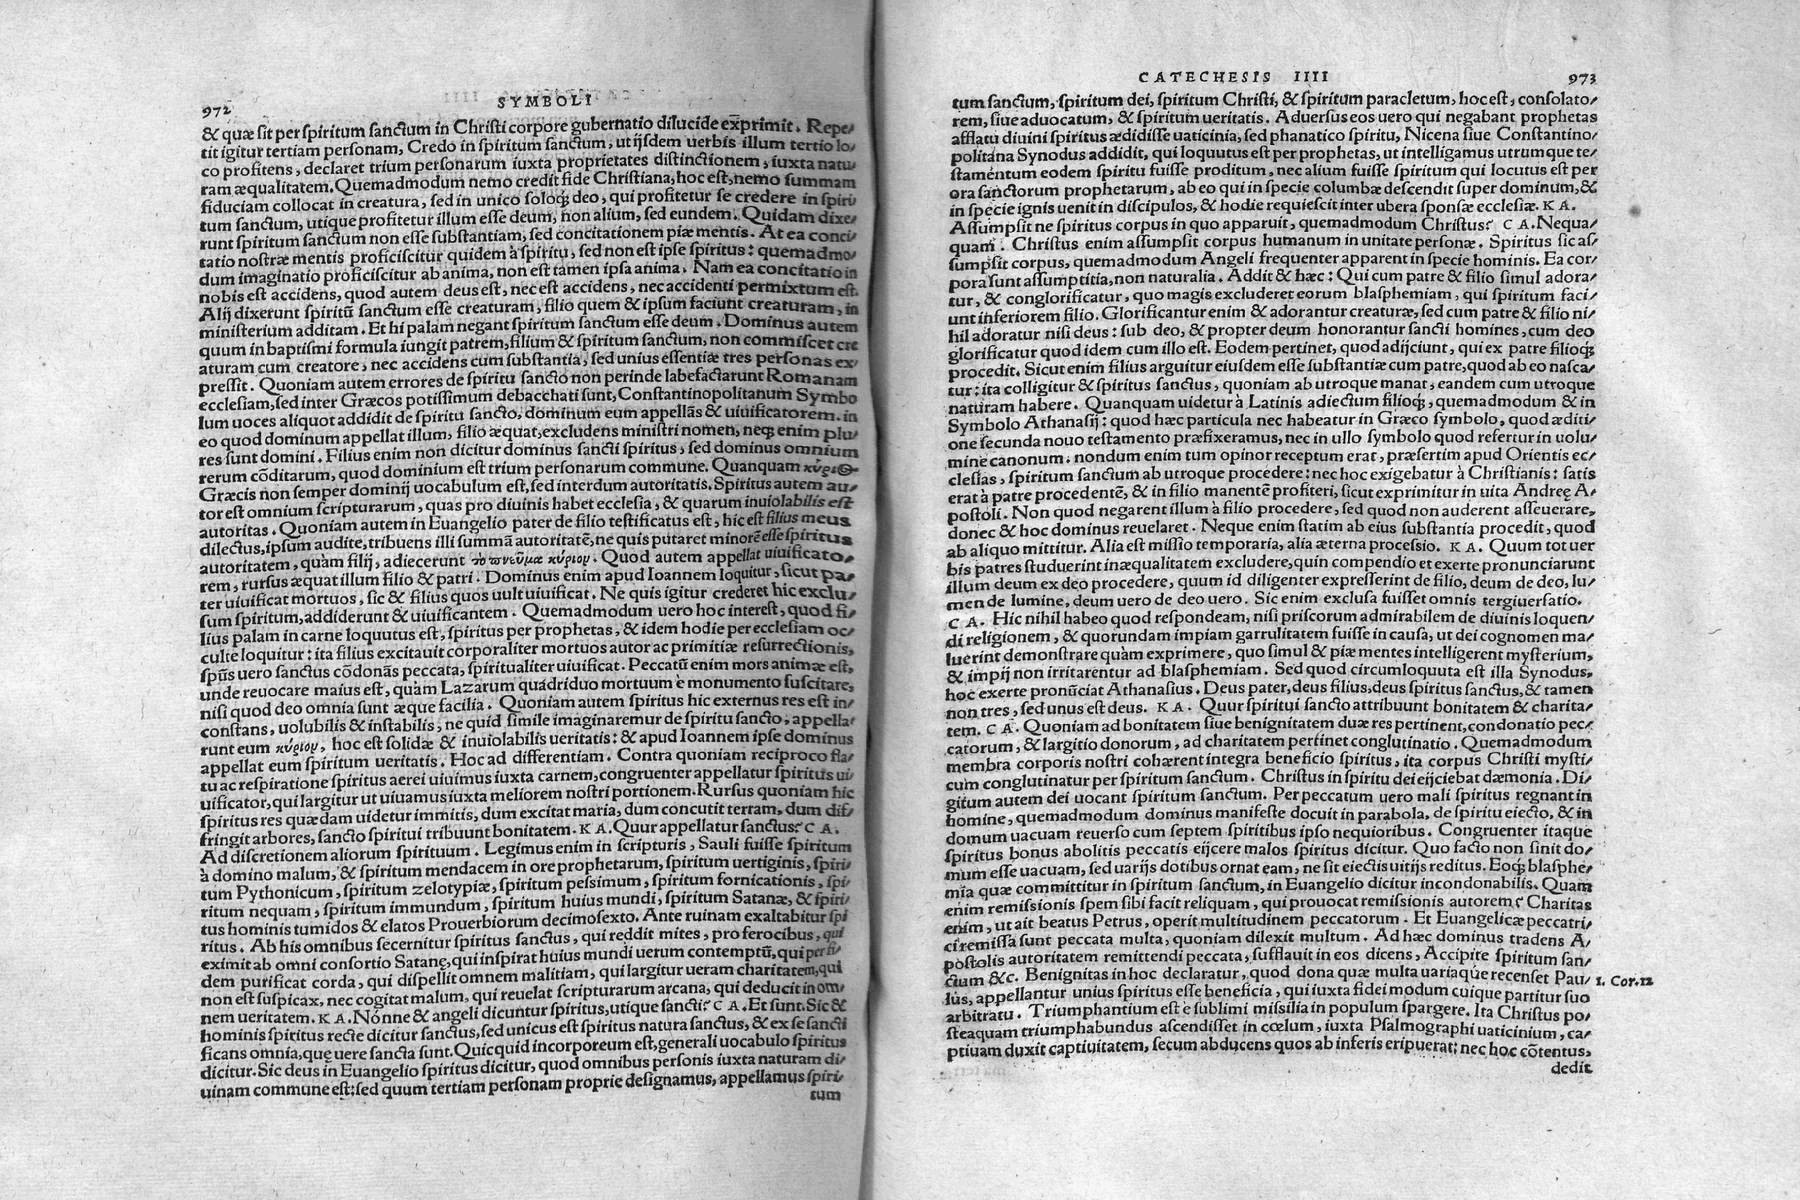 972 SYMBOLI
& quæ sit per spiritum sanctum in Christi corpore gubernatio dilucide exprimit. Repe/
tit igitur tertiam personam, Credo in spiritum sanctum, ut ijsdem uerbis illum tertio lo/
co profitens, declaret trium personarum iuxta proprietates distinctionem, iuxta natu/
ram æqualitatem. Quemadmodum nemo credit fide Christiana, hoc est, nemo summam
fiduciam collocat in creatura, sed in unico soloq́ꝫ deo, qui profitetur se credere in spiri/
tum sanctum, utique profitetur illum esse deum, non alium, sed eundem. Quidam dixe/
runt spiritum sanctum non esse substantiam, sed concitationem piæ mentis. At ea conci/
tatio nostræ mentis proficiscitur quidem à spiritu, sed non est ipse spiritus: quemadmo/
dum imaginatio proficiscitur ab anima, non est tamen ipsa anima. Nam ea concitatio in
nobis est accidens, quod autem deus est, nec est accidens, nec accidenti permixtum est.
Alij dixerunt spiritũ sanctum esse creaturam, filio quem & ipsum faciunt creaturam, in
ministerium additam. Et hi palam negant spiritum sanctum esse deum. Dominus autem
quum in baptismi formula iungit patrem, filium & spiritum sanctum, non commiscet cre
aturam cum creatore, nec accidens cum substantia, sed unius essentiæ tres personas ex/
pressit. Quoniam autem errores de spiritu sancto non perinde labefactarunt Romanam
ecclesiam, sed inter Græcos potissimum debacchati sunt, Constantinopolitanum Symbo
lum uoces aliquot addidit de spiritu sancto, dominum eum appellãs & uiuificatorem. in
eo quod dominum appellat illum, filio æquat, excludens ministri nomen, neqꝫ enim plu/
res sunt domini. Filius enim non dicitur dominus sancti spiritus, sed dominus omnium
rerum cõditarum, quod dominium est trium personarum commune. Quanquam κύριος
Græcis non semper dominij uocabulum est, sed interdum autoritatis. Spiritus autem au/
tor est omnium scripturarum, quas pro diuinis habet ecclesia, & quarum inuiolabilis est
autoritas. Quoniam autem in Euangelio pater de filio testificatus est, hic est filius meus
dilectus, ipsum audite, tribuens illi summã autoritatẽ, ne quis putaret minorẽ esse spiritus
autoritatem, quàm filij, adiecerunt τὸ πνεῦμα κύριον. Quod autem appellat uiuificato/
rem, rursus æquat illum filio & patri. Dominus enim apud Ioannem loquitur, sicut pa/
ter uiuificat mortuos, sic & filius quos uult uiuificat. Ne quis igitur crederet hic exclu/
sum spiritum, addiderunt & uiuificantem. Quemadmodum uero hoc interest, quod fi/
lius palam in carne loquutus est, spiritus per prophetas, & idem hodie per ecclesiam oc/
culte loquitur: ita filius excitauit corporaliter mortuos autor ac primitiæ resurrectionis,
spũs uero sanctus cõdonãs peccata, spiritualiter uiuificat. Peccatũ enim mors animæ est,
unde reuocare maius est, quàm Lazarum quadriduo mortuum è monumento suscitare,
nisi quod deo omnia sunt æque facilia. Quoniam autem spiritus hic externus res est in/
constans, uolubilis & instabilis, ne quid simile imaginaremur de spiritu sancto, appella/
runt eum κύριον, hoc est solidæ & inuiolabilis ueritatis: & apud Ioannem ipse dominus
appellat eum spiritum ueritatis. Hoc ad differentiam. Contra quoniam reciproco fla/
tu ac respiratione spiritus aerei uiuimus iuxta carnem, congruenter appellatur spiritus ui/
uificator, qui largitur ut uiuamus iuxta meliorem nostri portionem. Rursus quoniam hic
spiritus res quædam uidetur immitis, dum excitat maria, dum concutit terram, dum dif/
fringit arbores, sancto spiritui tribuunt bonitatem. KA. Quur appellatur sanctus? CA.
Ad discretionem aliorum spirituum. Legimus enim in scripturis, Sauli fuisse spiritum
à domino malum, & spiritum mendacem in ore prophetarum, spiritum uertiginis, spiri/
tum Pythonicum, spiritum zelotypiæ, spiritum pessimum, spiritum fornicationis, spi/
ritum nequam, spiritum immundum, spiritum huius mundi, spiritum Satanæ, & spiri/
tus hominis tumidos & elatos Prouerbiorum decimosexto. Ante ruinam exaltabitur spi
ritus. Ab his omnibus secernitur spiritus sanctus, qui reddit mites, pro ferocibus, qui
eximit ab omni consortio Satanę, qui inspirat huius mundi uerum contemptũ, qui per fi/
dem purificat corda, qui dispellit omnem malitiam, qui largitur ueram charitatem, qui
non est suspicax, nec cogitat malum, qui reuelat scripturarum arcana, qui deducit in om/
nem ueritatem. KA. Nónne & angeli dicuntur spiritus, utique sancti? CA. Et sunt. Sic &
hominis spiritus recte dicitur sanctus, sed unicus est spiritus natura sanctus, & ex se sancti
ficans omnia, quę uere sancta sunt. Quicquid incorporeum est, generali uocabulo spiritus
dicitur. Sic deus in Euangelio spiritus dicitur, quod omnibus personis iuxta naturam di/
uinam commune est: sed quum tertiam personam proprie designamus, appellamus spiri/
tum
CATECHESIS IIII 973
tum sanctum, spiritum dei, spiritum Christi, & spiritum paracletum, hoc est, consolato/
rem, siue aduocatum, & spiritum ueritatis. Aduersus eos uero qui negabant prophetas
afflatu diuini spiritus ædidisse uaticinia, sed phanatico spiritu, Nicena siue Constantino/
politana Synodus addidit, qui loquutus est per prophetas, ut intelligamus utrumque te/
stamentum eodem spiritu fuisse proditum, nec alium fuisse spiritum qui locutus est per
ora sanctorum prophetarum, ab eo qui in specie columbæ descendit super dominum, &
in specie ignis uenit in discipulos, & hodie requiescit inter ubera sponsæ ecclesiæ. KA.
Assumpsit ne spiritus corpus in quo apparuit, quemadmodum Christus? CA. Nequa/
quam. Christus enim assumpsit corpus humanum in unitate personæ. Spiritus sic as/
sumpsit corpus, quemadmodum Angeli frequenter apparent in specie hominis. Ea cor/
pora sunt assumptitia, non naturalia. Addit & hæc: Qui cum patre & filio simul adora/
tur, & conglorificatur, quo magis excluderet eorum blasphemiam, qui spiritum faci/
unt inferiorem filio. Glorificantur enim & adorantur creaturæ, sed cum patre & filio ni/
hil adoratur nisi deus: sub deo, & propter deum honorantur sancti homines, cum deo
glorificatur quod idem cum illo est. Eodem pertinet, quod adijciunt, qui ex patre filioq́ꝫ
procedit. Sicut enim filius arguitur eiusdem esse substantiæ cum patre, quod ab eo nasca/
tur: ita colligitur & spiritus sanctus, quoniam ab utroque manat, eandem cum utroque
naturam habere. Quanquam uidetur à Latinis adiectum filioq́ꝫ, quemadmodum & in
Symbolo Athanasij: quod hæc particula nec habeatur in Græco symbolo, quod æditi/
one secunda nouo testamento præfixeramus, nec in ullo symbolo quod refertur in uolu/
mine canonum. nondum enim tum opinor receptum erat, præsertim apud Orientis ec/
clesias, spiritum sanctum ab utroque procedere: nec hoc exigebatur à Christianis: satis
erat à patre procedentẽ, & in filio manentẽ profiteri, sicut exprimitur in uita Andreę A/
postoli. Non quod negarent illum à filio procedere, sed quod non auderent asseuerare,
donec & hoc dominus reuelaret. Neque enim statim ab eius substantia procedit, quod
ab aliquo mittitur. Alia est missio temporaria, alia æterna processio. KA. Quum tot uer
bis patres studuerint inæqualitatem excludere, quin compendio et exerte pronunciarunt
illum deum ex deo procedere, quum id diligenter expresserint de filio, deum de deo, lu/
men de lumine, deum uero de deo uero. Sic enim exclusa fuisset omnis tergiuersatio.
CA. Hic nihil habeo quod respondeam, nisi priscorum admirabilem de diuinis loquen/
di religionem, & quorundam impiam garrulitatem fuisse in causa, ut dei cognomen ma/
luerint demonstrare quàm exprimere, quo simul & piæ mentes intelligerent mysterium,
& impij non irritarentur ad blasphemiam. Sed quod circumloquuta est illa Synodus,
hoc exerte pronũciat Athanasius. Deus pater, deus filius, deus spiritus sanctus, & tamen
non tres, sed unus est deus. KA. Quur spiritui sancto attribuunt bonitatem & charita/
tem. CA. Quoniam ad bonitatem siue benignitatem duæ res pertinent, condonatio pec/
catorum, & largitio donorum, ad charitatem pertinet conglutinatio. Quemadmodum
membra corporis nostri cohærent integra beneficio spiritus, ita corpus Christi mysti/
cum conglutinatur per spiritum sanctum. Christus in spiritu dei eijciebat dæmonia. Di/
gitum autem dei uocant spiritum sanctum. Per peccatum uero mali spiritus regnant in
homine, quemadmodum dominus manifeste docuit in parabola, de spiritu eiecto, & in
domum uacuam reuerso cum septem spiritibus ipso nequioribus. Congruenter itaque
spiritus bonus abolitis peccatis eijcere malos spiritus dicitur. Quo facto non sinit do/
mum esse uacuam, sed uarijs dotibus ornat eam, ne sit eiectis uitijs reditus. Eoq́ꝫ blasphe/
mia quæ committitur in spiritum sanctum, in Euangelio dicitur incondonabilis. Quam
enim remissionis spem sibi facit reliquam, qui prouocat remissionis autorem? Charitas
enim, ut ait beatus Petrus, operit multitudinem peccatorum. Et Euangelicæ peccatri/
ci remissa sunt peccata multa, quoniam dilexit multum. Ad hæc dominus tradens A/
postolis autoritatem remittendi peccata, sufflauit in eos dicens, Accipite spiritum san/
ctum &c. Benignitas in hoc declaratur, quod dona quæ multa uariaque recenset Pau/ 1. Cor. 12
lus, appellantur unius spiritus esse beneficia, qui iuxta fidei modum cuique partitur suo
arbitratu. Triumphantium est è sublimi missilia in populum spargere. Ita Christus po/
steaquam triumphabundus ascendisset in cœlum, iuxta Psalmographi uaticinium, ca/
ptiuam duxit captiuitatem, secum abducens quos ab inferis eripuerat: nec hoc cõtentus,
dedit